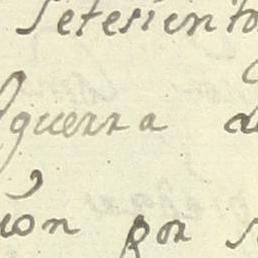 Setesiento
guerra
ion por s